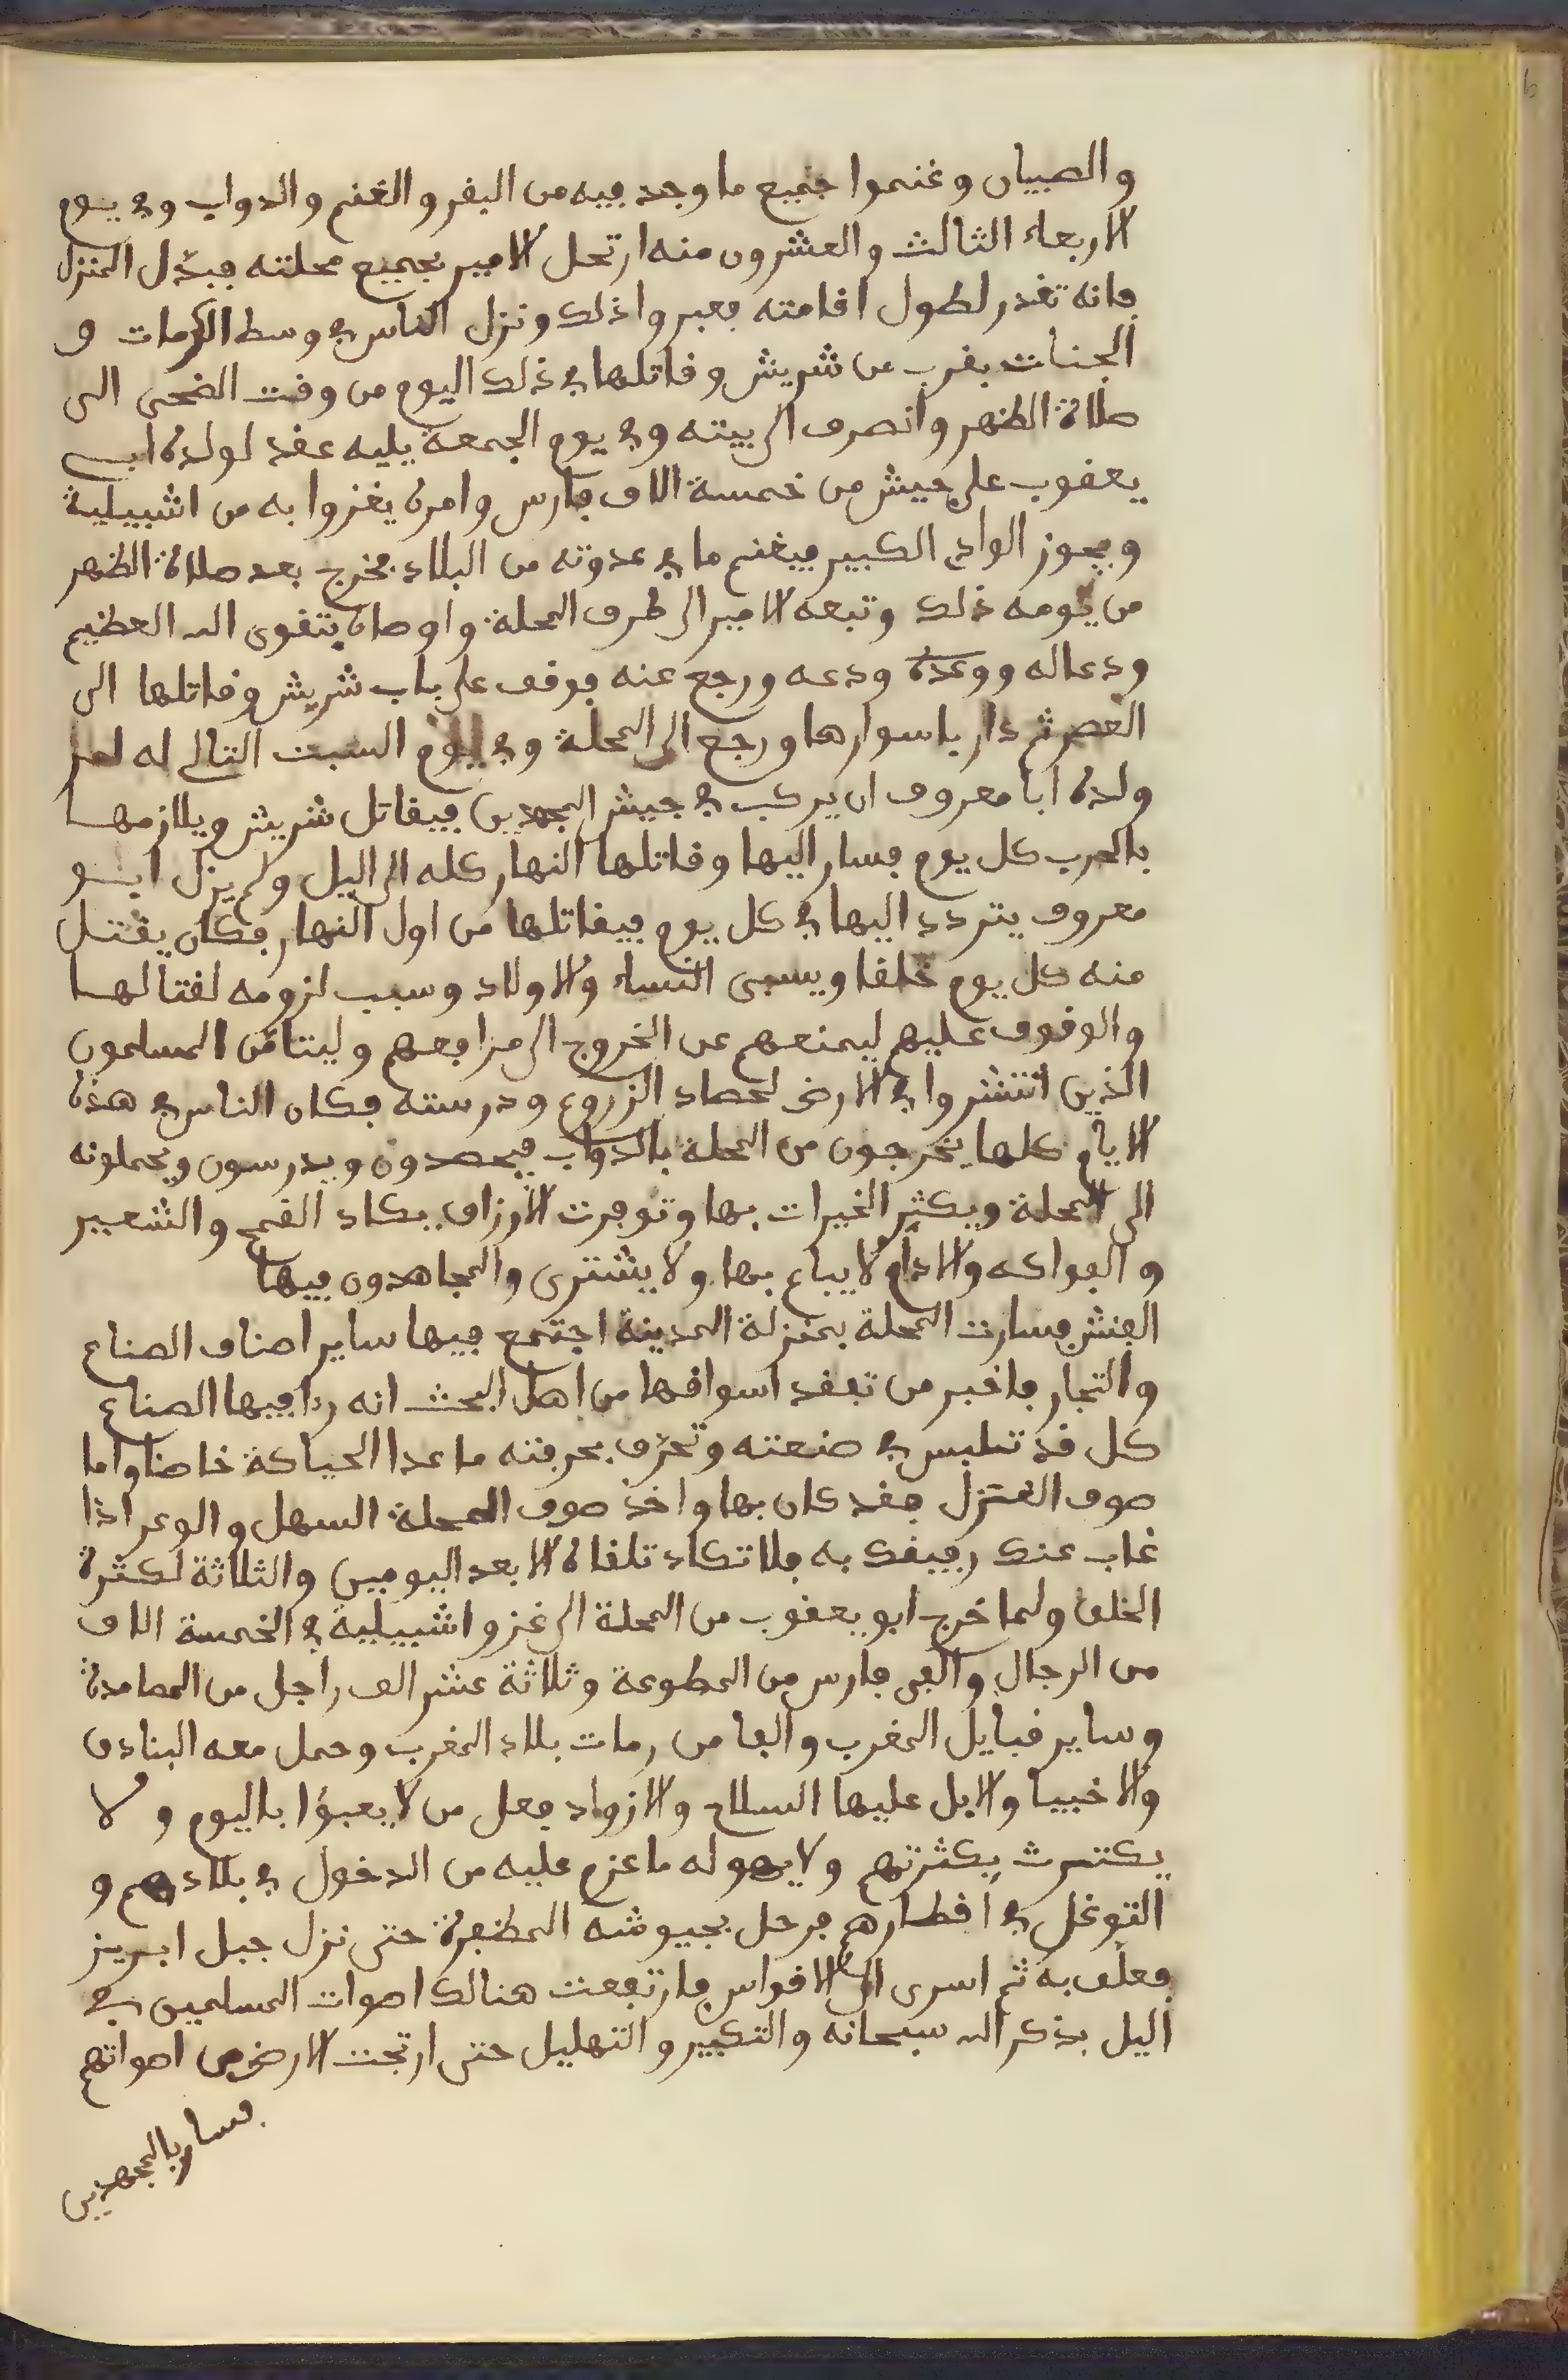 والصبيان وغنموا جميع ما وجد فيه من البقر والغنم والدواب وفي يوم
الاربعاء الثالث والعشرون منه ارتحل الامير بجميع محلته فبدّل المنزل
فانه تغدر لطول اقامته فعبروا ذلك ونزل الناس في وسط الكرمات و
الجنات بقرب من شريش وقاتلها في ذلك اليوم من وقت الضحى الى
صلاة الظهر وانصرف الى بيته وفي يوم الجمعة يليه عقد لولده ابي
يعقوب على جيش من خمسة الاف فارس وامره يغزوا به من اشبيلية
ويجوز الوادي الكبير فيغنم ما في عدوته من البلاد فخرج بعد صلاة الظهر
من يومه ذلك وتبعه الامير الى طرف المحلة واوصاه بتقوى الله العظيم
ودعا له ووعده ودعه ورجع عنه فوقف على باب شريش وقاتلها الى
العصر ثم دار باسوارها ورجع الى المحلة وفي يوم السبت التالي له امر
ولده ابا معروف ان يركب في جيش المجهدين فيقاتل شريش ويلازمها
بالحرب كل يوم فسار اليها وقاتلها النهار كله الى اليل ولم يزل ابو
معروف يتردد اليها في كل يوم فيقاتلها من اول النهار فكان يقتل
منه كل يوم خلقا ويسبى النساء والاولاد وسبب لزومه لقتالها
والوقوف عليهم ليمنعهم من الخروج الى مرافعهم وليتامّن المسلمون
الذين انتشروا في الارض لحصاد الزروع ودرسته فكان الناس في هذه
الايام كلها يخرجون من المحلة بالدواب فيحصدون ويدرسون ويحملونه
الى المحلة ويكثر الخيرات بها وتوفرت الارزاق بكاد القمح والشعير
والفواكه والادام لا يباع بها ولا يشترى والمجاهدون فيها
الفنش فسارت المحلة بمنزلة المدينة اجتمع فيها ساير اصناف الصناع
والتجار فاخبر من تفقد اسواقها من اهل البحث انه رءا فيها الصناع
كل قد تلبس في صنعته وتحرّف بحرفته ما عدا الحياكة خاصا واما
صوف الغزل فقد كان بها واخذ صوف المحلة السهل والوعر اذا
غاب عنك رفيفك به فلا تكاد تلقاه الا بعد اليومين والثلاثة لكثرة
الخلق ولما خرج ابو يعقوب من المحلة الى غزو اشبيلية في الخمسة الاف
من الرجال والفى فارس من المطوعة وثلاثة عشر الف راجل من المصامدة
وساير قبايل المغرب والفا من رمات بلاد المغرب وحمل معه البنادق
والاخبيا والابل عليها السلاح والازواد فعل من لا يعبؤا باليوم ولا
يكترث بكثرتهم ولا يهوله ما عزم عليه من الدخول في بلادهم و
التوغل في اقطارهم فرحل بجيوشه المظفرة حتى نزل جبل ابريز
فعلّف به ثم اسرى الى الاقواس فارتفعت هنالك اصوات المسلمين في
اليل بذكر الله سبحانه والتكبير والتهليل حتى ارتجت الارض من اصواتهم
فسار بالمجهدين